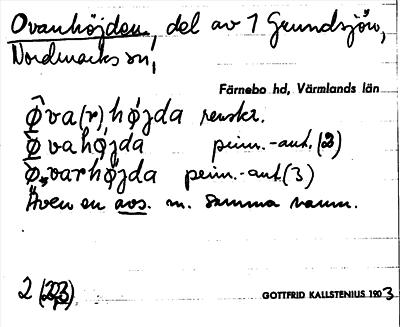 Ovanhöjden, del av 1 Grundsjön,
Nordmarks sn,
Färnebo hd, Värmlands län
ø̂va(r)hǿjda renskr.
ø̀vahǿjda prim.-ant. (2)
ø̀varhǿjda prim.-ant. (3)
Även en avs. m. samma namn.
2 (2,3)
GOTTFRID KALLSTENIUS 1903